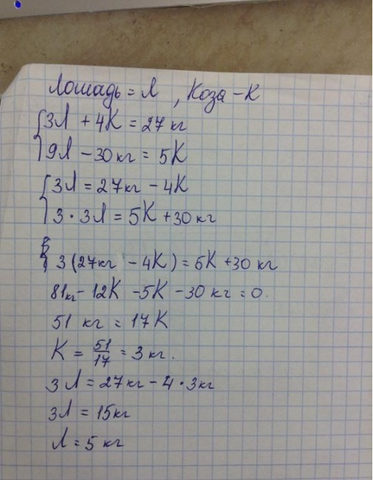 Лошадь = Л , Коза - К
3Л + 4К = 27 кг
9Л - 30 кг = 5К
3Л = 27 кг - 4К
3 · 3Л = 5К + 30 кг
3 (27 кг - 4К) = 5К + 30 кг
81 кг - 12К - 5К - 30 кг = 0.
51 кг = 17К
К = 51/17 = 3 кг.
3Л = 27 кг - 4 · 3 кг
3Л = 15 кг
Л = 5 кг